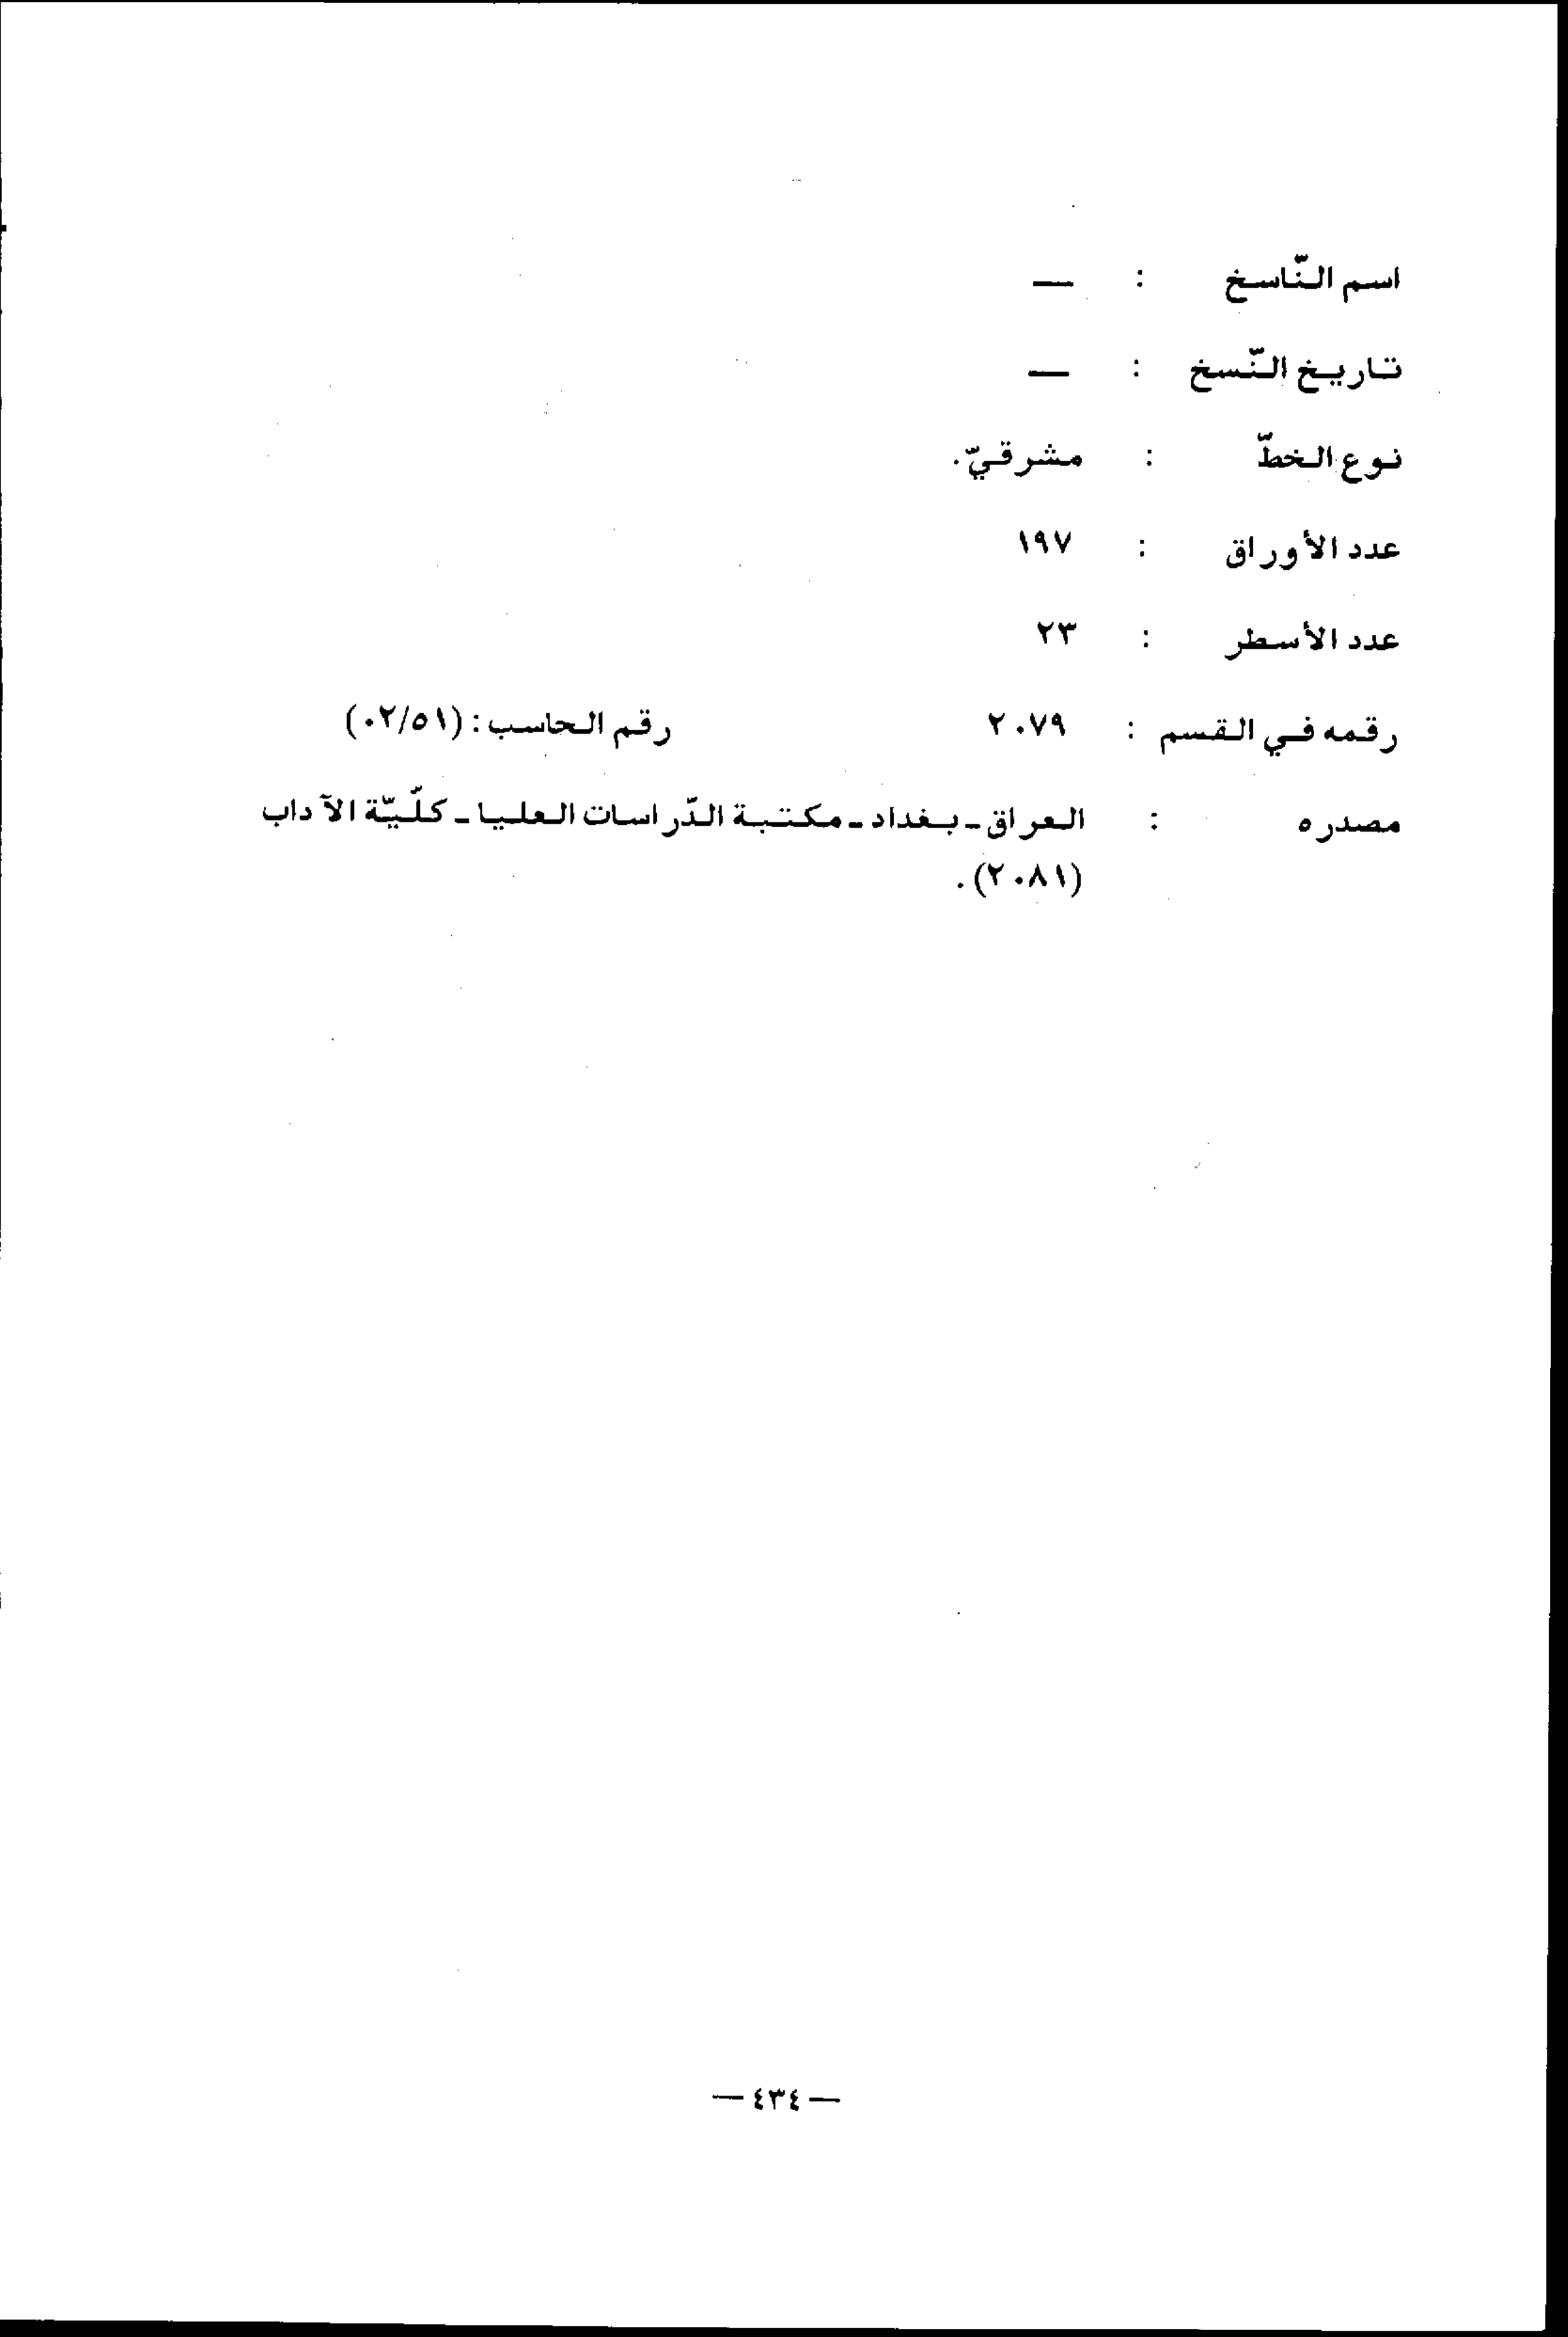 اسم النّاسخ : —
تاريخ النّسخ : —
نوع الخطّ : مشرقيّ.
عدد الأوراق : ١٩٧
عدد الأسطر : ٢٣
رقمه في القسم : ٢٠٧٩ رقم الحاسب : (٠٢/٥١)
مصدره : العراق ـ بغداد ـ مكتبة الدّراسات العليا ـ كلّيّة الآداب
(٢٠٨١).
— ٤٣٤ —